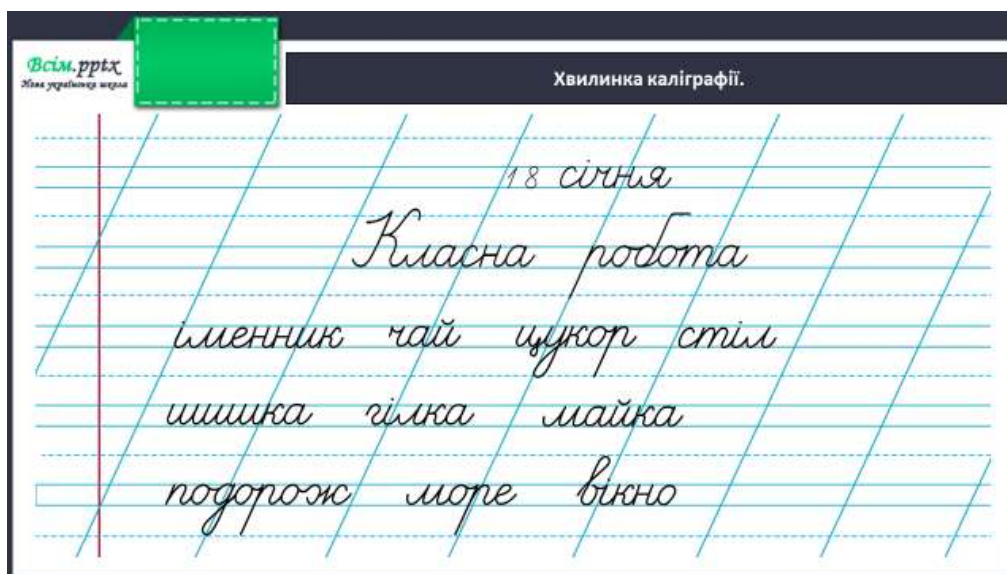 Всім.pptx
Нова українська школа
Хвилинка каліграфії.
18 січня
Класна робота
іменник чай цукор стіл
шишка гілка майка
подорож море вікно